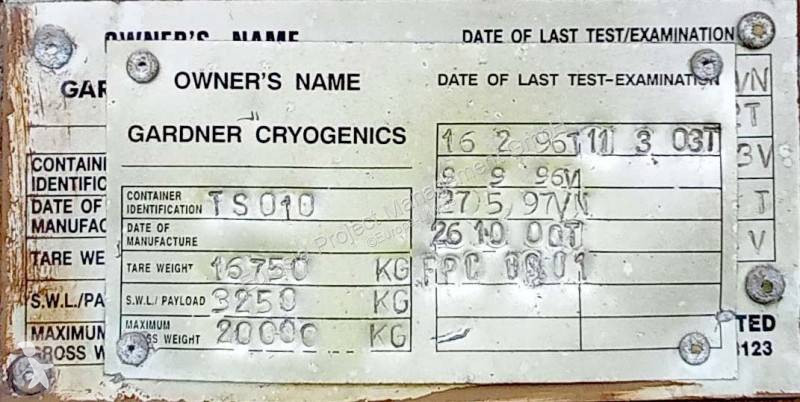 OWNER'S NAME DATE OF LAST TEST/EXAMINATION
OWNER'S NAME DATE OF LAST TEST-EXAMINATION
GARDNER CRYOGENICS
16 2 96T 11 3 03T
9 9 96V
CONTAINER IDENTIFICATION TS010
27,5,97VN
DATE OF MANUFACTURE
26 10 00T
TARE WEIGHT 16750 KG
S.W.L./ PAYLOAD 3250 KG
MAXIMUM
WEIGHT 20000 KG
GAR
CONTAIN
IDENTIFIC
DATE OF
MANUFAC
TARE WE
S.W.L./PA
MAXIMUM
GROSS W
VN
2T
3V
T
V
TED
123